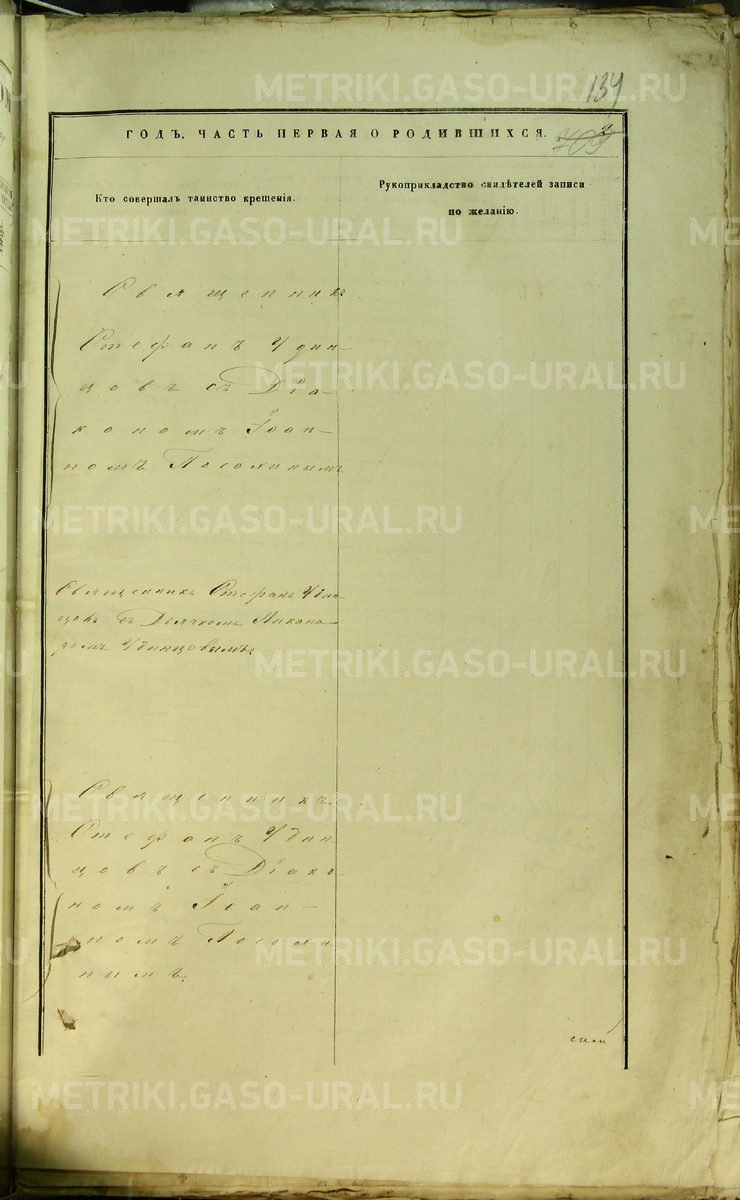 134
ГОДЪ, ЧАСТЬ ПЕРВАЯ О РОДИВШИХСЯ.
Кто совершалъ таинство крещенія.
Рукоприкладство свидѣтелей записи
по желанію.
Священникъ
Стефанъ Удин-
цовъ съ Діа-
кономъ Іоан-
номъ Посохинымъ
Священникъ Стефанъ Удин-
цовъ съ Дьячкомъ Никано-
ромъ Удинцовымъ.
Священникъ
Стефанъ Удин
цовъ съ Діако-
номъ Іоан-
номъ Посохи
нымъ.
METRIKI.GASO-URAL.RU